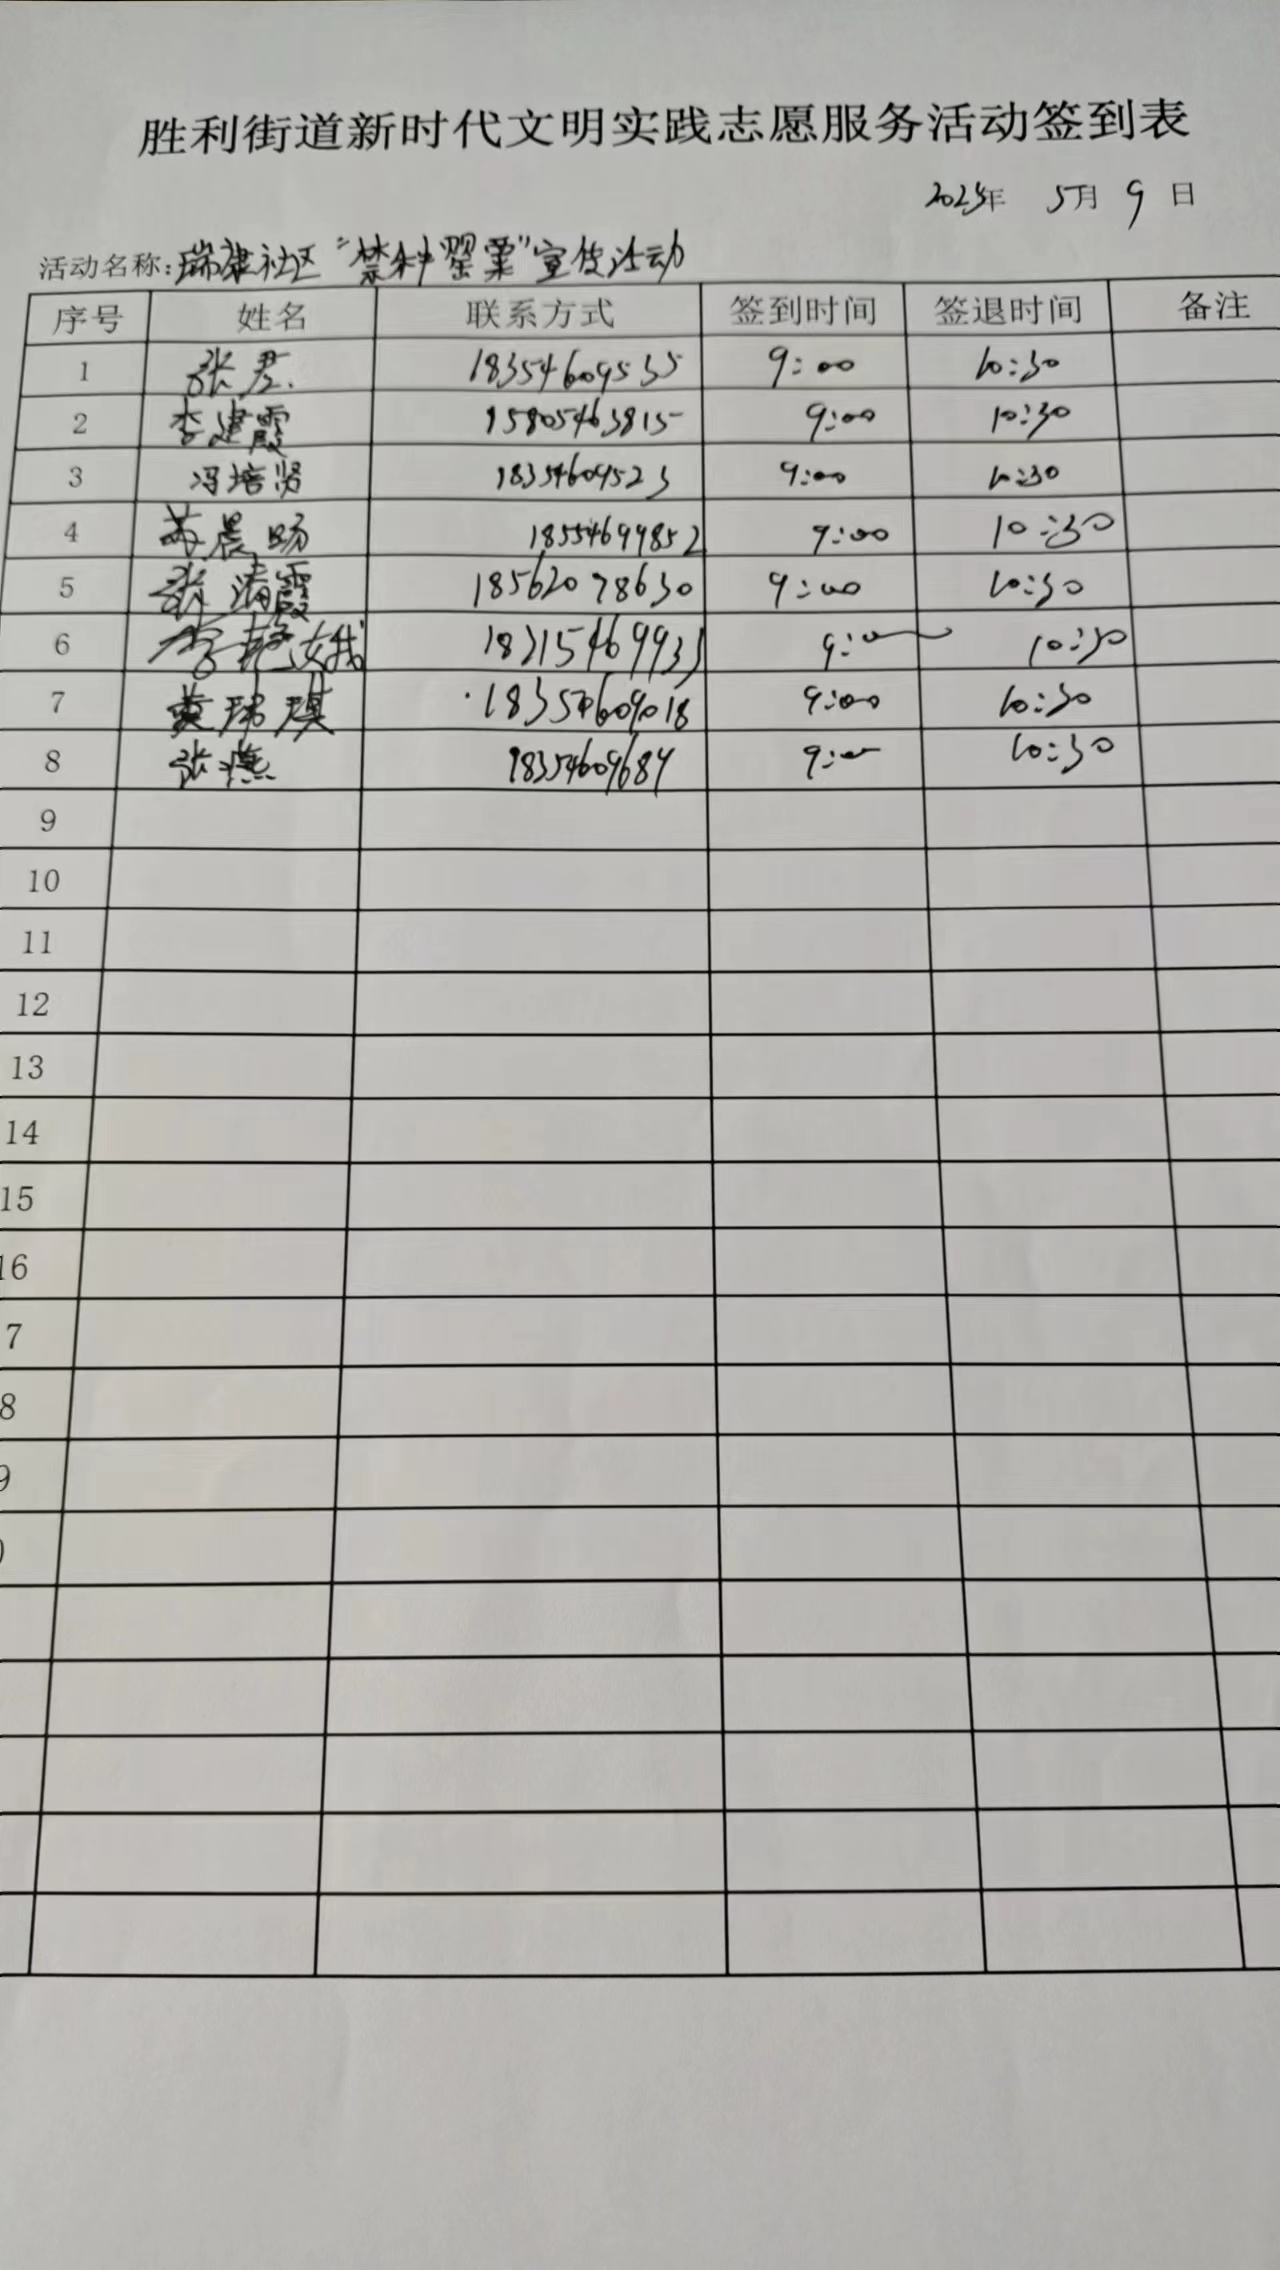 胜利街道新时代文明实践志愿服务活动签到表
2025年 5月 9 日
活动名称:瑞康社区“禁种罂粟”宣传活动
序号 姓名 联系方式 签到时间 签退时间 备注
1 张君 18354609535 9:00 10:30
2 李建霞 15805463815 9:00 10:30
3 冯培贤 18354609523 9:00 10:30
4 苏晨旸 18554699852 9:00 10:30
5 张清霞 18562078630 9:00 10:30
6 李艳娥 18315469933 9:00 10:30
7 黄琪 18354609018 9:00 10:30
8 张燕 18354609684 9:00 10:30
9
10
11
12
13
14
15
16
7
8
9